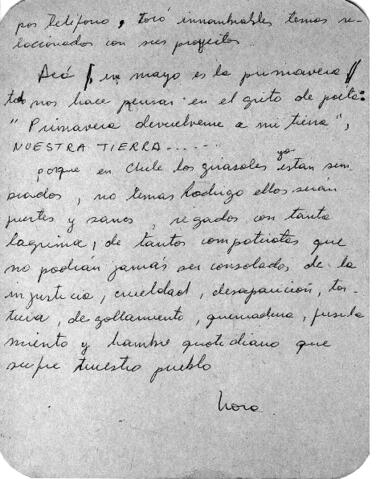 por teléfono, tocó innumbrables temas re-
laccionados con sus proyectos..
Acá (en mayo es la primavera)
todo nos hace pensar en el grito de poeta:
"Primavera devuelveme a mi tierra",
NUESTRA TIERRA......
porque en Chile los girasoles ya estan sem
brados, no temas Rodrigo ellos serán
fuertes y sanos, regados con tanta
lagrima, de tantos compatriotas que
no podrán jamás ser consolados de la
injusticia, crueldad, desaparición, tor-
tura, degollamiento, quemadura, fusila
miento y hambre quotidiano que
sufre nuestro pueblo
Nora